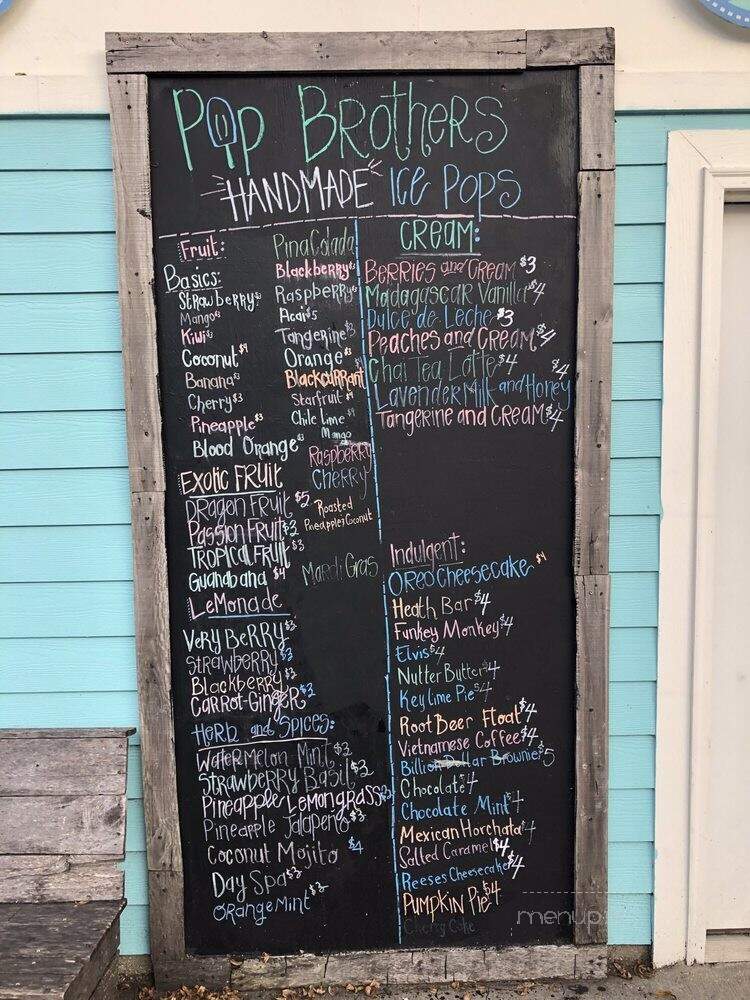 Pop Brothers
Handmade Ice Pops
Fruit:
Basics:
Strawberry $3
Mango $3
Kiwi $3
Coconut $4
Banana $3
Cherry $3
Pineapple $3
Blood Orange $3
Pina Colada
Blackberry $3
Raspberry $3
Acai $5
Tangerine $3
Orange $3
Blackcurrant
Starfruit
Chile Lime $4
Mango
Raspberry
Cherry
Roasted
Pineapple Coconut
Exotic Fruit
Dragon Fruit $5
Passion Fruit $3
Tropical Fruit $3
Guanabana $4
Mardi Gras
Lemonade
Very Berry $3
Strawberry $3
Blackberry $3
Carrot-Ginger $3
Herb and Spices:
Watermelon Mint $3
Strawberry Basil $3
Pineapple Lemongrass $3
Pineapple Jalapeno $3
Coconut Mojito $4
Day Spa $3
Orange Mint $3
Cream:
Berries and Cream $3
Madagascar Vanilla $4
Dulce de Leche $3
Peaches and Cream $4
Chai Tea Latte $4
Lavender Milk and Honey $4
Tangerine and Cream $4
Indulgent:
Oreo Cheesecake $4
Heath Bar $4
Funkey Monkey $4
Elvis $4
Nutter Butter $4
Key Lime Pie $4
Root Beer Float $4
Vietnamese Coffee $4
Billion Dollar Brownie $5
Chocolate $4
Chocolate Mint $4
Mexican Horchata $4
Salted Caramel $4
Reeses Cheesecake $4
Pumpkin Pie $4
Cherry Coke
menupix